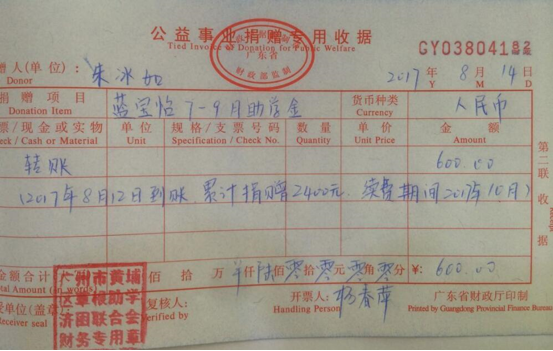 公益事业捐赠专用收据
Tied Invoice of Donation for Public Welfare
广东省
财政部监制
GY03804182
赠人(单位): 朱冰如
Donor
2017 年 8 月 14 日
Y M D
捐赠项目 蓝宝怡 7-9月助学金 货币种类 人民币
Donation Item Currency
票/现金或实物 单位 规格/支票号码 数量 单价 金额
eck / Cash or Material Unit Specification / Check No. Quantity Unit Price Amount
转账 600.00
(2017年8月12日到账 累计捐赠2400元. 续费期间2017年10月)
第二联
金额合计(大写) 佰 拾 万 仟 陆 佰 零 拾 零 元 零 角 零 分 ¥: 600.00
Total Amount (in words)
受单位(盖章) 复核人: 开票人: 杨春萍 广东省财政厅印制
Receiver seal Verified by Handling Person Printed by Guangdong Provincial Finance Bureau
广州市黄埔
区萝根助学
济困联合会
财务专用章